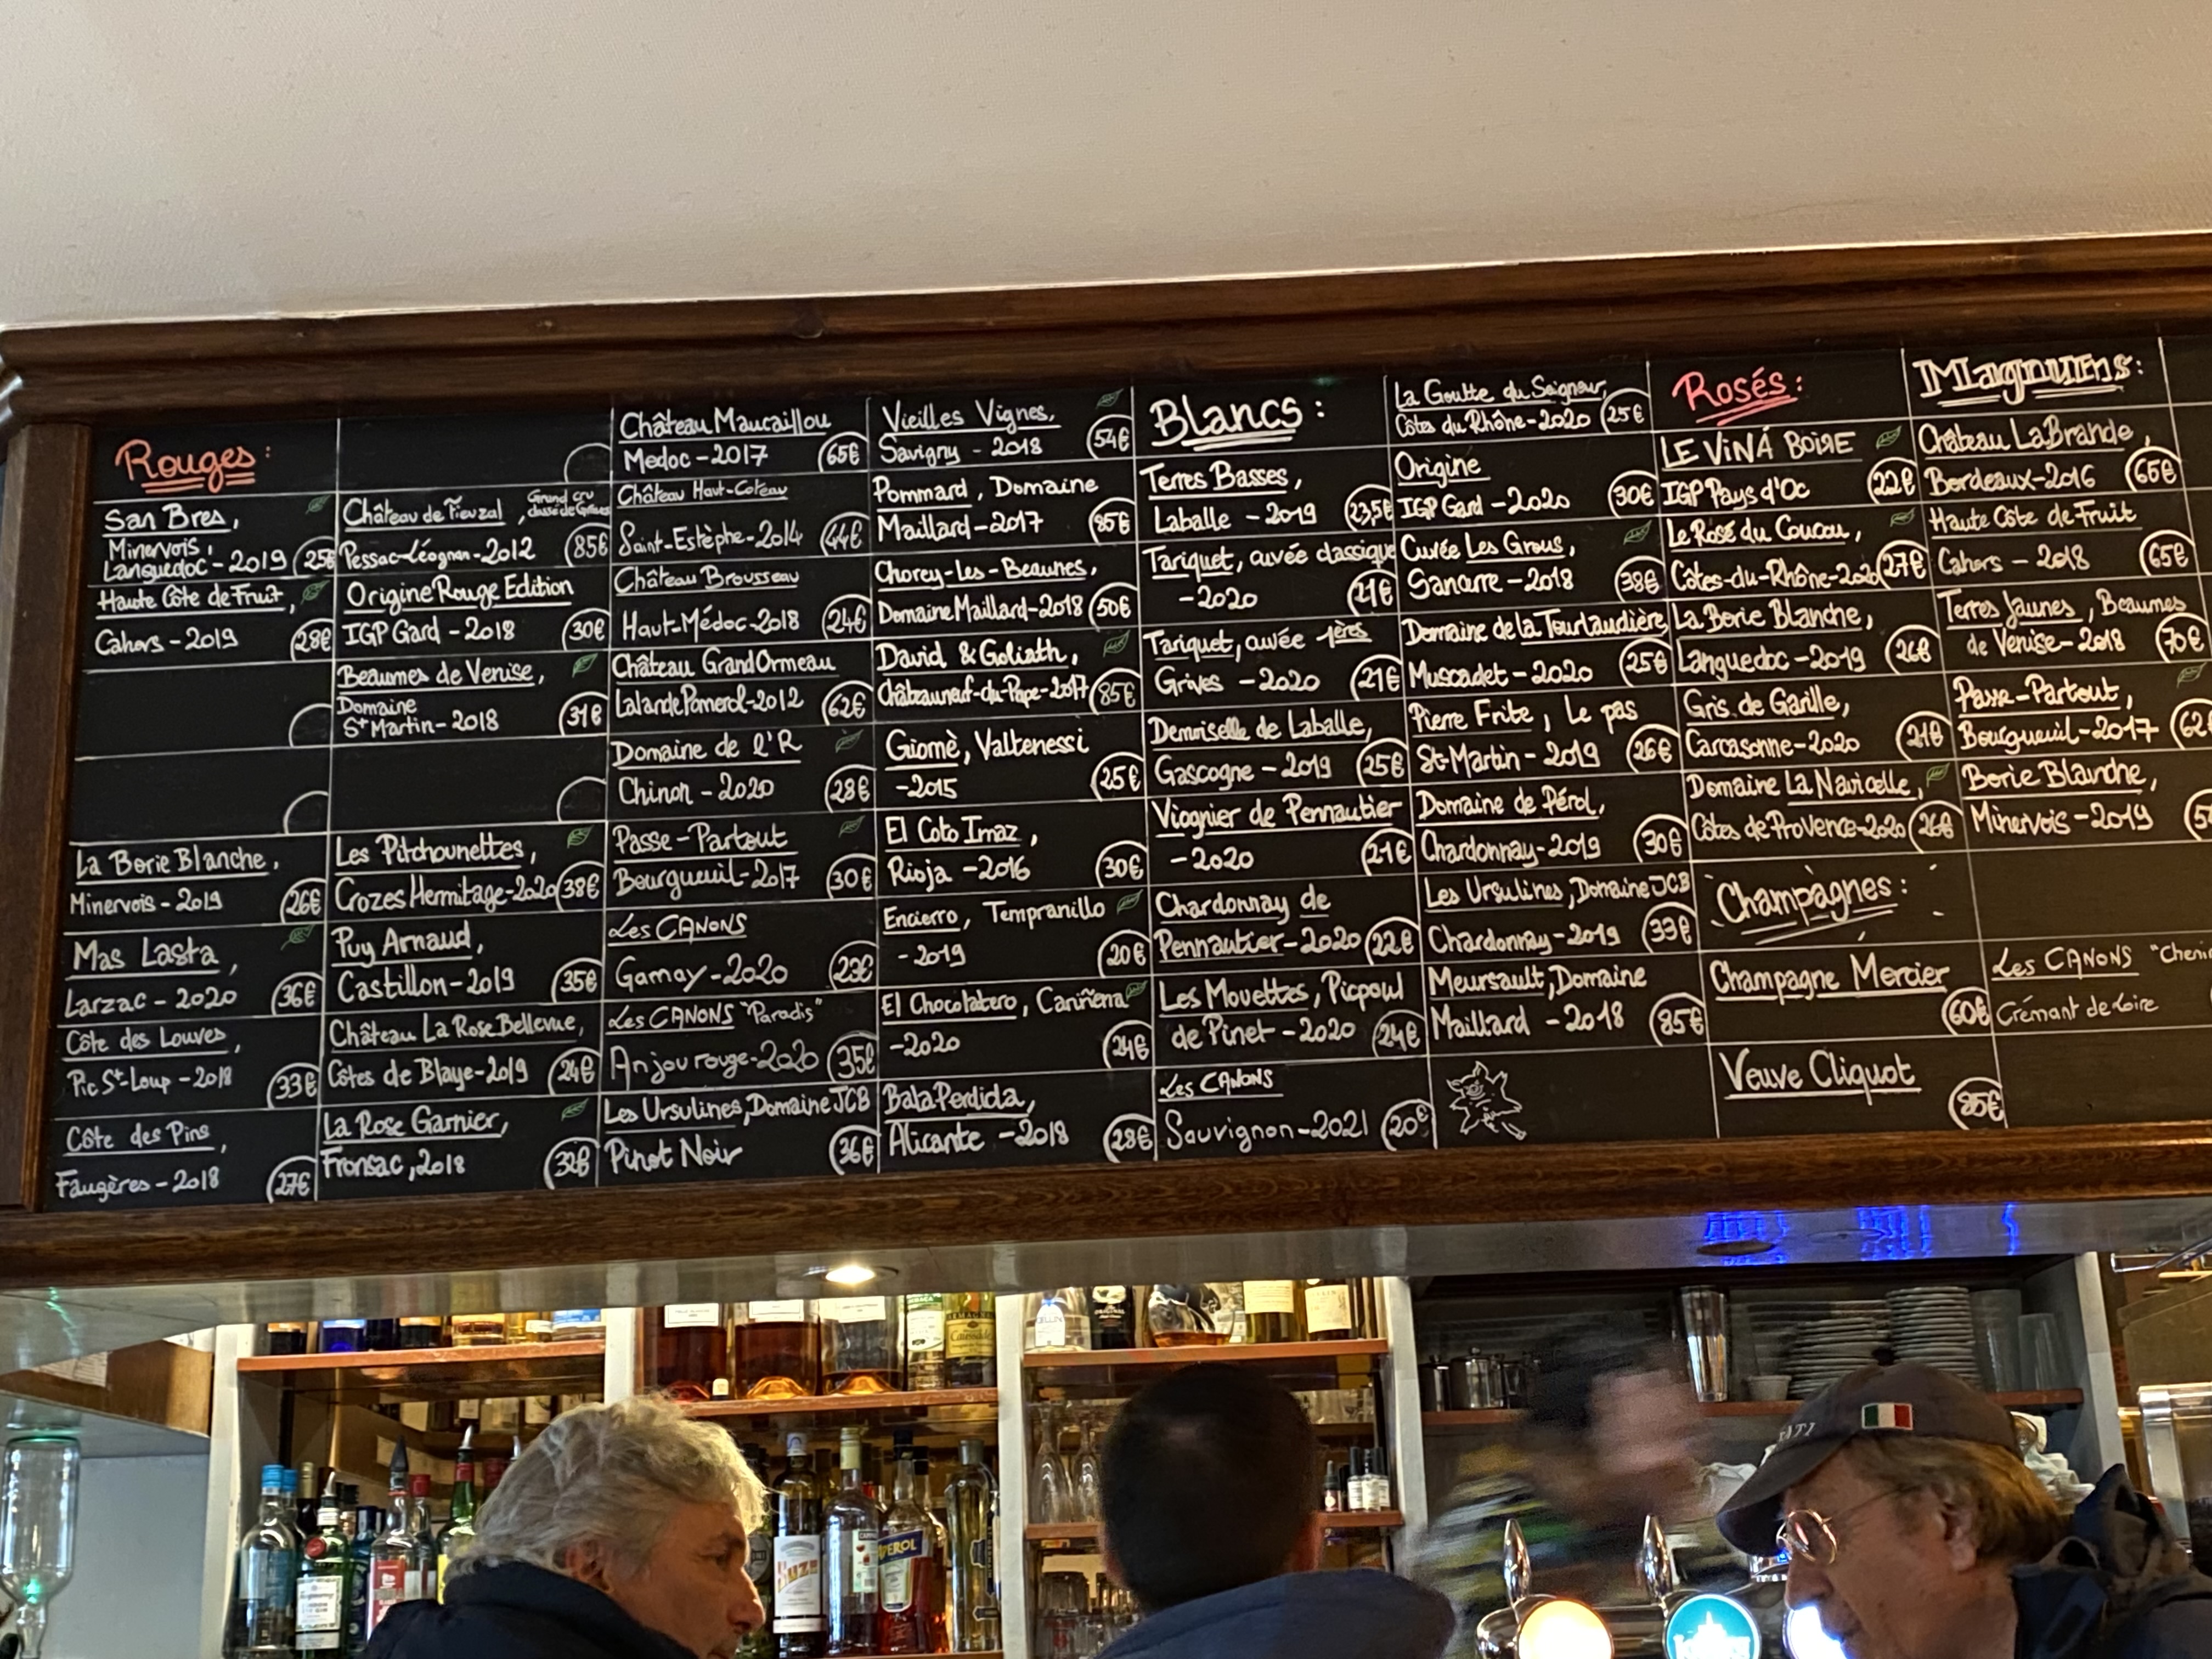 Rouges:
San Bres,
Minervois,
Languedoc - 2019 25€
Haute Côte de Fruit,
Cahors - 2019 28€
La Borie Blanche,
Minervois - 2019 26€
Mas Lasta,
Larzac - 2020 36€
Côte des Louves,
Pic St-Loup - 2018 33€
Côte des Pins,
Faugères - 2018 27€
Château de Fieuzal, Grand cru
classé de Graves
Pessac-Léognan-2012 85€
Origine Rouge Edition
IGP Gard - 2018 30€
Beaumes de Venise,
Domaine
St Martin - 2018 31€
Les Pitchounettes,
Crozes Hermitage-2020 38€
Puy Arnaud,
Castillon-2019 35€
Château La Rose Bellevue,
Côtes de Blaye-2019 24€
La Rose Garnier,
Fronsac, 2018 32€
Château Maucaillou
Medoc - 2017 65€
Château Haut-Coteau
Saint-Estèphe-2014 44€
Château Brousseau
Haut-Médoc-2018 24€
Château Grand Ormeau
Lalande Pomerol-2012 62€
Domaine de l'R
Chinon - 2020 28€
Passe-Partout
Bourgueuil-2017 30€
Les CANONS
Gamay-2020 23€
Les CANONS "Paradis"
Anjou rouge-2020 35€
Les Ursulines, Domaine JCB
Pinot Noir 36€
Vieilles Vignes,
Savigny - 2018 54€
Pommard, Domaine
Maillard-2017 85€
Chorey-Les-Beaunes,
Domaine Maillard-2018 50€
David & Goliath,
Châteauneuf-du-Pape-2017 85€
Giomè, Valtenessi
-2015 25€
El Coto Imaz,
Rioja -2016 30€
Encierro, Tempranillo
-2019 20€
El Chocolatero, Cariñena
-2020 24€
Bala Perdida,
Alicante -2018 28€
Blancs:
Terres Basses,
Laballe - 2019 23,5€
Tariquet, cuvée classique
-2020 21€
Tariquet, cuvée 1ères
Grives - 2020 21€
Demoiselle de Laballe,
Gascogne - 2019 25€
Viognier de Pennautier
-2020 21€
Chardonnay de
Pennautier-2020 22€
Les Mouettes, Picpoul
de Pinet -2020 24€
Les CANONS
Sauvignon-2021 20€
La Goutte du Seigneur,
Côtes du Rhône-2020 25€
Origine
IGP Gard -2020 30€
Cuvée Les Grous,
Sancerre -2018 38€
Domaine de la Tourlaudière
Muscadet -2020 25€
Pierre Frite, Le pas
St-Martin - 2019 26€
Domaine de Pérol,
Chardonnay-2019 30€
Les Ursulines, Domaine JCB
Chardonnay-2019 33€
Meursault, Domaine
Maillard -2018 85€
Rosés:
LE ViN Á BOiRE
IGP Pays d'Oc 22€
Le Rosé du Coucou,
Côtes-du-Rhône-2020 27€
La Borie Blanche,
Languedoc-2019 26€
Gris de Garille,
Carcasonne-2020 21€
Domaine La Navicelle,
Côtes de Provence-2020 26€
Champagnes:
Champagne Mercier
60€
Veuve Cliquot
85€
Magnums:
Château La Brande,
Bordeaux-2016 65€
Haute Côte de Fruit
Cahors - 2018 65€
Terres Jaunes, Beaumes
de Venise-2018 70€
Passe-Partout,
Bourgueuil-2017 62
Borie Blanche,
Minervois-2019
Les CANONS "Cheni
Crémant de Loire